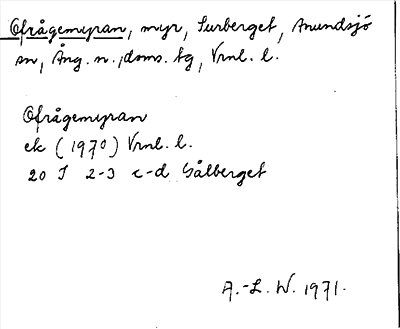 Ofrågemyran, myr, Surberget, Anundsjö
sn, Ång. n., dsms. tg, Vrnl. l.
Ofrågemyran
ek (1970) Vrnl. l.
20 I 2-3 c-d Gålberget
A.-L. W. 1971.